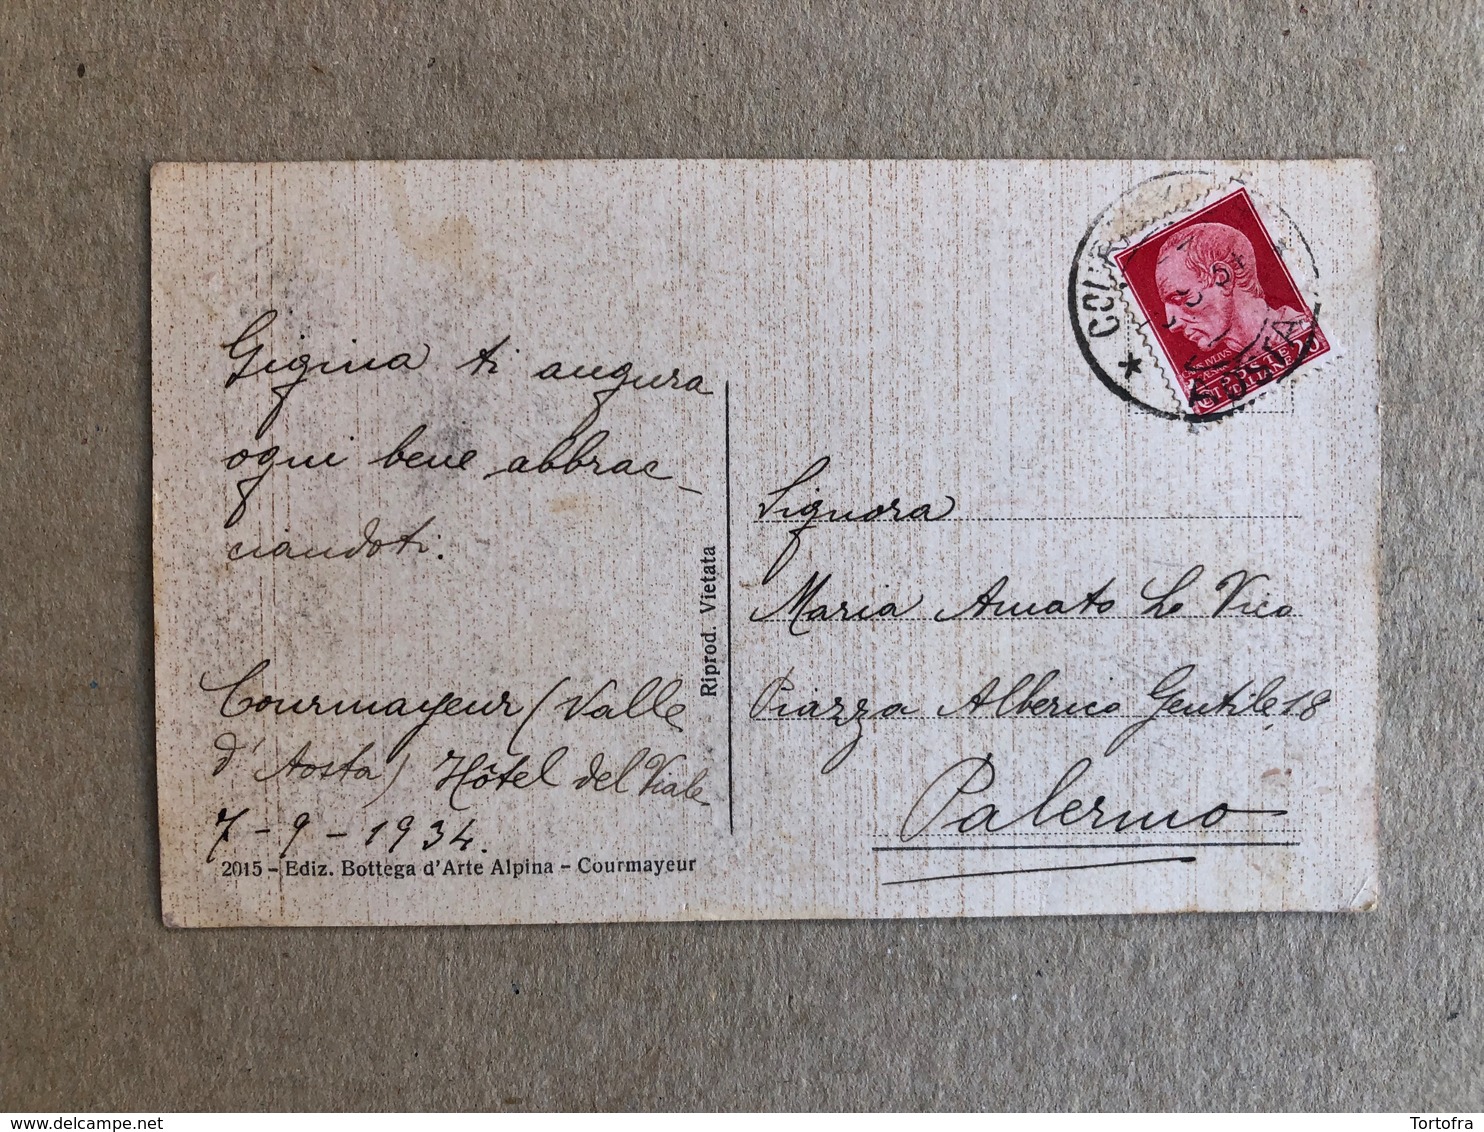 Gigina ti augura
ogni bene abbrac_
ciandoti.
Courmayeur (Valle
d'Aosta) Hôtel del Viale
7-9-1934.
2015 - Ediz. Bottega d'Arte Alpina - Courmayeur
Riprod. Vietata
Signora
Maria Amato Lo Vico
Piazza Alberico Gentile 18
Palermo
AOSTA
20
Tortofra